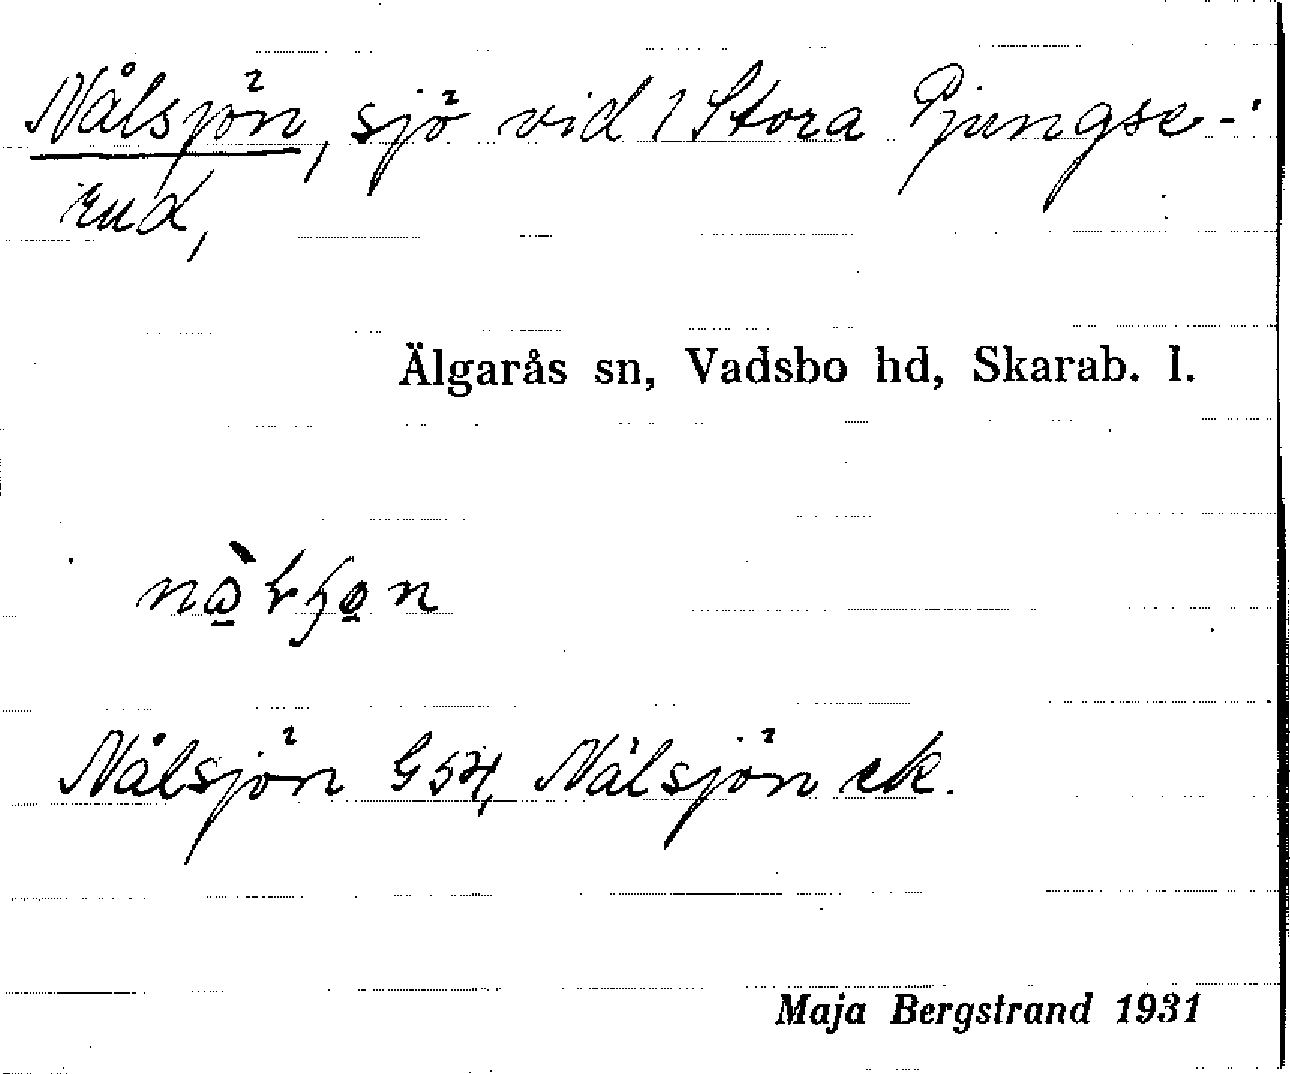 Nålsjön, sjö vid 1 Stora Pjungse-
rud,
Älgarås sn, Vadsbo hd, Skarab. l.
Nålsjön G 54, Nålsjön ek.
Maja Bergstrand 1931